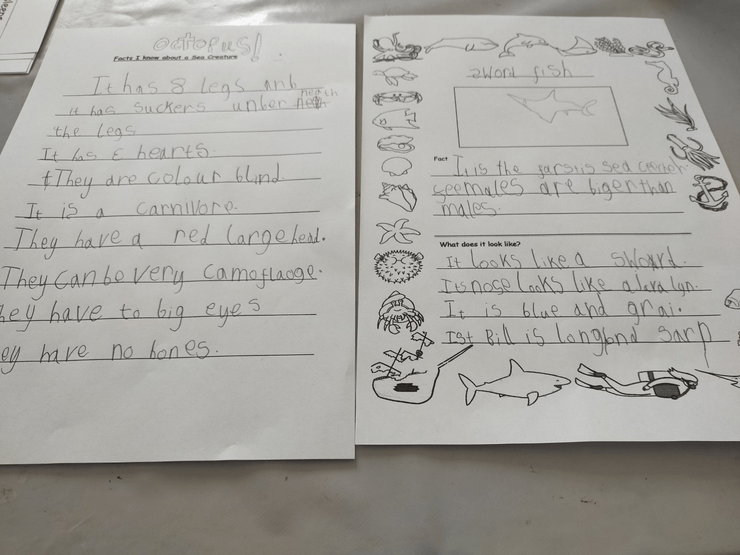 octopus!
Facts I know about a Sea Creature
It has 8 legs anb
it has suckers unber neath
the legs
It has hearts.
They are colour blind.
It is a carnivore.
They have a red large head.
They can be very camoflaoge.
hey have to big eyes
ey have no bones.
sword fish
Fact It is the sea
feemales are biger than
males.
What does it look like?
It looks like a sword.
Its nose looks like a
It is blue and grai.
Ist Bill is long and sarp